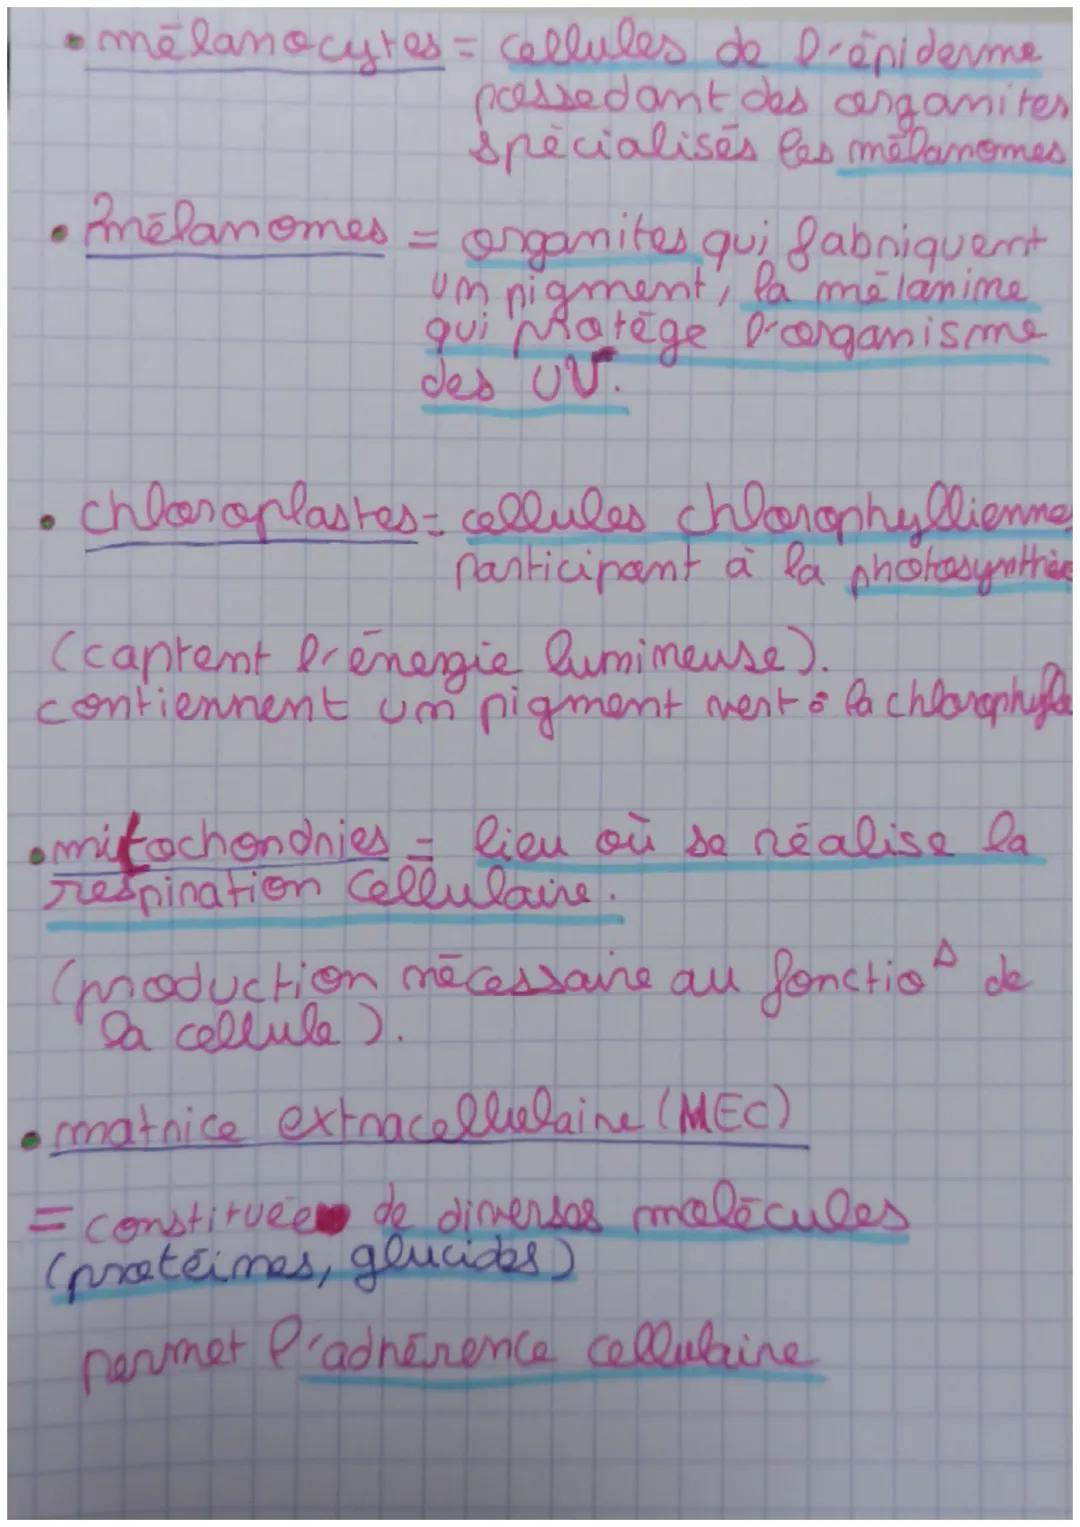 • mélanocytes = cellules de l'épiderme
possedant des organites
spécialisés les mélanomes
• mélanomes = organites qui fabriquent
un pigment, la mélanine
qui protège l'organisme
des UV.
• chloroplastes = cellules chlorophyllienne
participant à la photosynthèse
(captent l'énergie lumineuse).
contiennent un pigment vert : la chlorophylle
• mitochondries = lieu où se réalise la
respiration cellulaire.
(production nécessaire au fonctio^Δ de
la cellule).
• matrice extracellulaire (MEC)
= constituée de diverses molécules
(protéines, glucides)
permet l'adhérence cellulaire